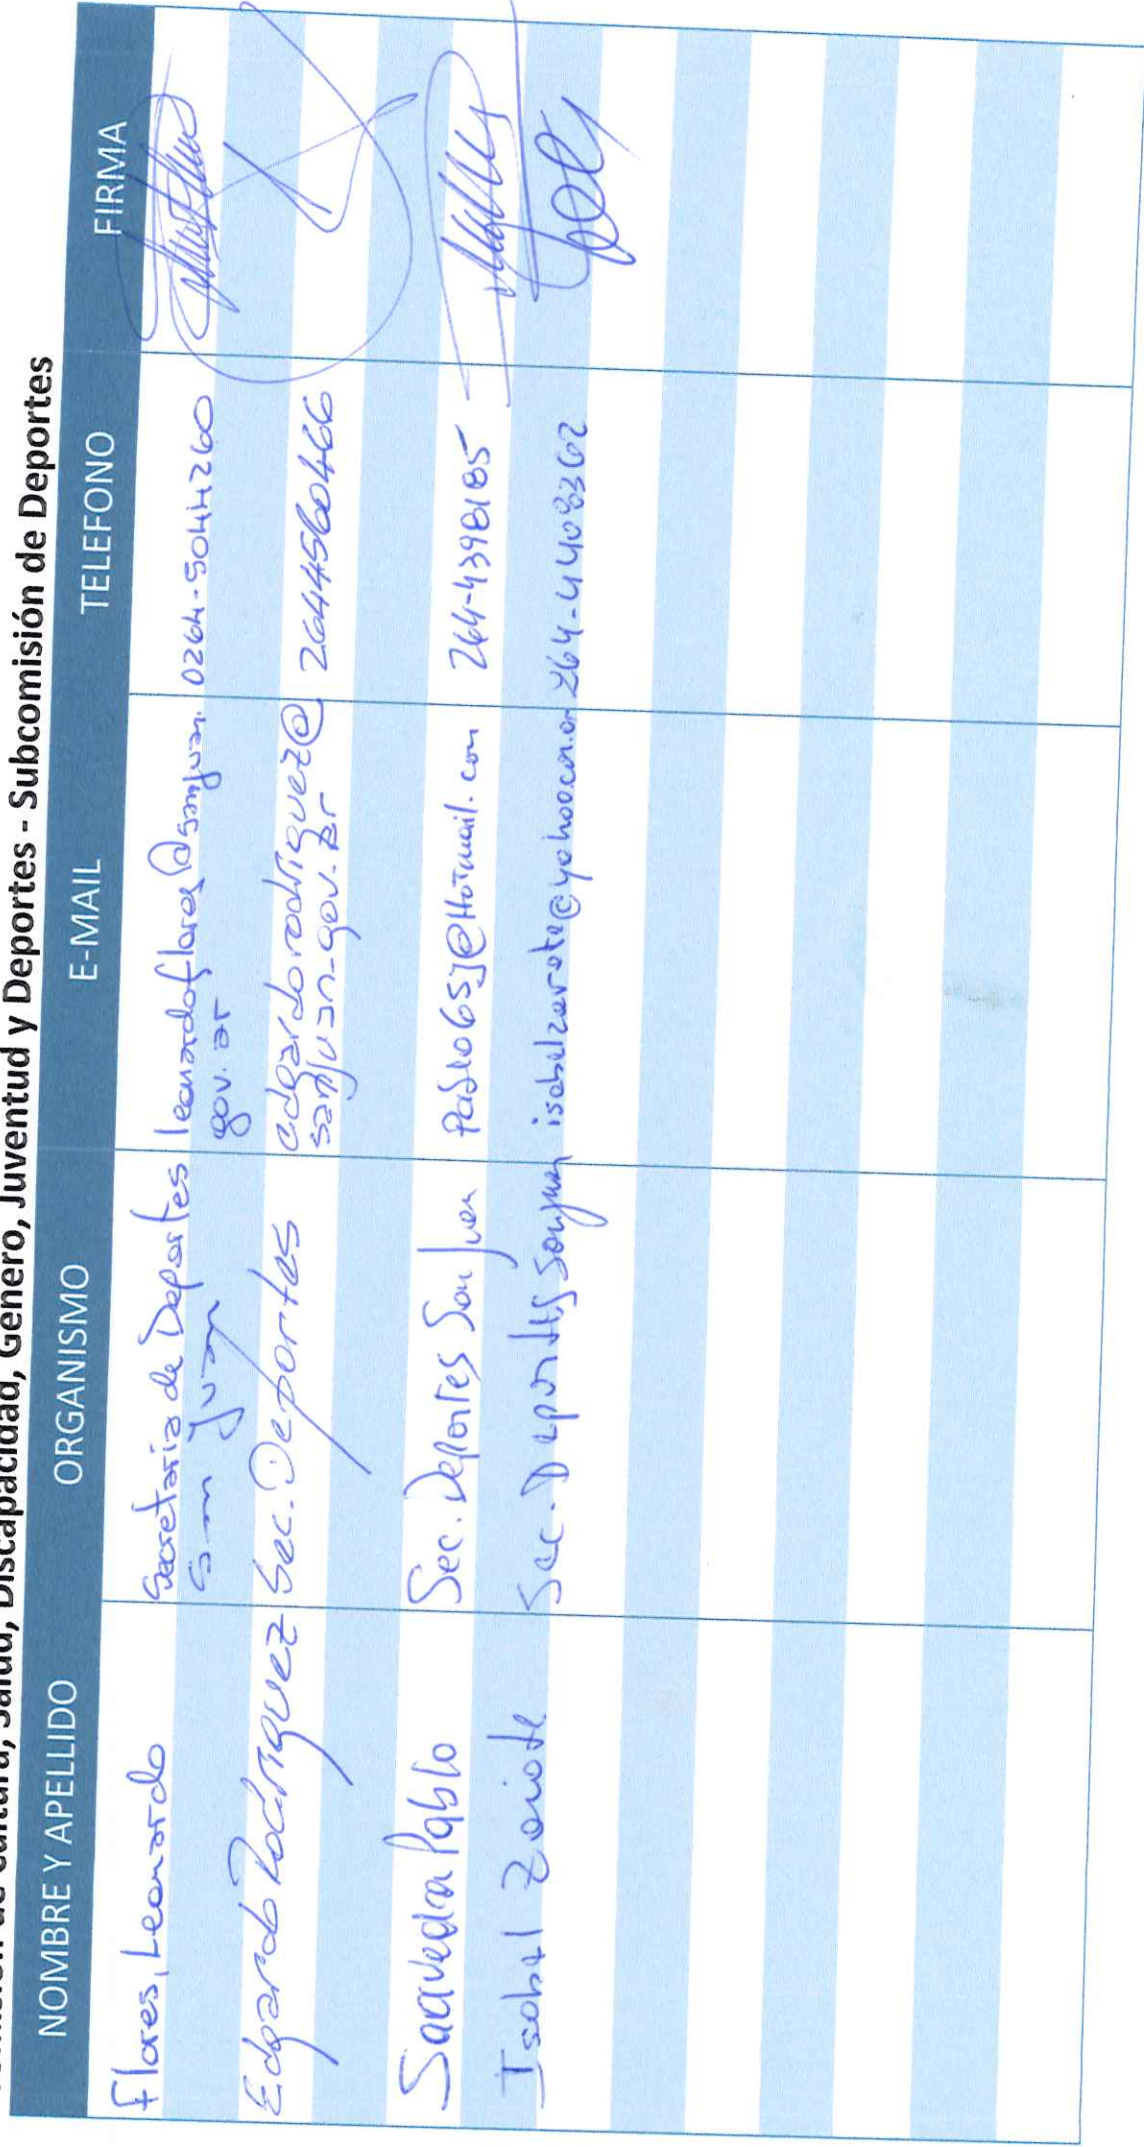 de Cultura, Salud, Discapacidad, Genero, Juventud y Deportes - Subcomisión de Deportes
NOMBRE Y APELLIDO ORGANISMO E-MAIL TELEFONO FIRMA
Flores, Leonardo Secretaria de Deportes leonardoflores@sanjuan. 0264-5044260
San Juan gov.ar
Edgardo Rodriguez Sec. Deportes edgardorodriguez@ 2644560466
sanjuan.gov.ar
Saavedra Pablo Sec. Deportes San Juan Pablo65J@Hotmail.com 264-4398185
Isabel Zarate Sec. Deportes San Juan isabelzarate@yahoo.com.ar 264-4408362